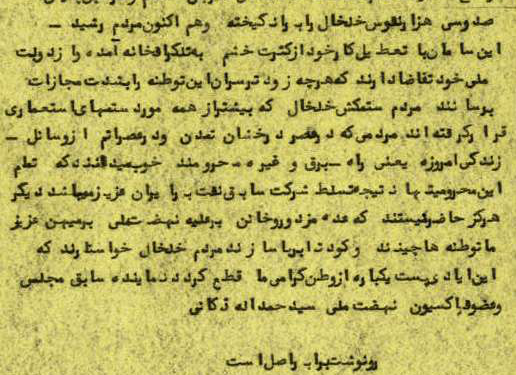 صدوسی هزار نفوس خلخال را برانگیخته وهم اکنون مردم رشید
این سامان با تعطیل کار خود از کثرت خشم به تلگرافخانه آمده و از دولت
ملی خود تقاضا دارند که هرچه زودتر سران این توطئه را بشدت مجازات
برسانند مردم ستمکش خلخال که بیشتر از همه مورد ستمهای استعماری
قرار گرفته اند مردمی که در عصر درخشان تمدن و در عصر اتم از وسائل
زندگی امروزه یعنی راه - برق و غیره محرومند خوب میدانند که تمام
این محرومیتها نتیجه تسلط شرکت سابق نفت برایران عزیز میباشد دیگر
هرگز حاضر نیستند که عده مزدور و خائن برعلیه نهضت ملی برمیهن عزیز
ما توطئه ها چینند و کودتا برپا سازند مردم خلخال خواستارند که
این ایادی پست یکباره از وطن گرامی ما قطع گردد نماینده سابق مجلس
وعضو فراکسیون نهضت ملی سیدحمداله ذکائی
رونوشت برابر اصل است